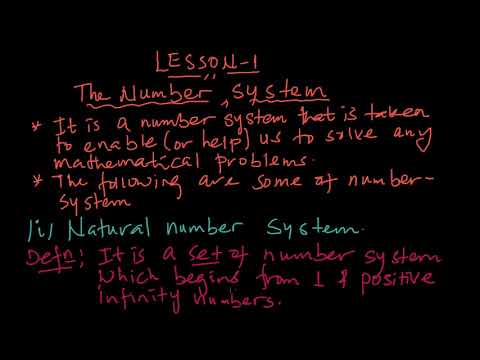 LESSON-1
The Number System
* It is a number system that is taken
to enable (or help) us to solve any
mathematical problems.
* The following are some of number-
system
(i) Natural number System.
Defn; It is a set of number system
which begins from 1 & positive
infinity numbers.